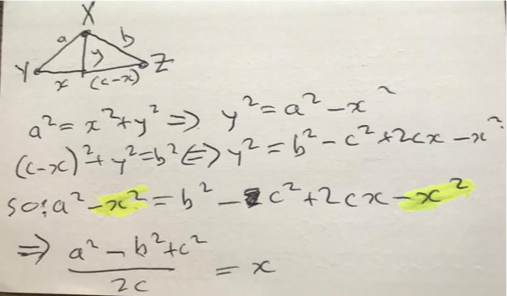 X
a y b
Y x (c-x) Z
a² = x² + y² ⇒ y² = a² - x²
(c-x)² + y² = b² ⇔ y² = b² - c² + 2cx - x²
so: a² - x² = b² - c² + 2cx - x²
⇒ (a² - b² + c²)/2c = x